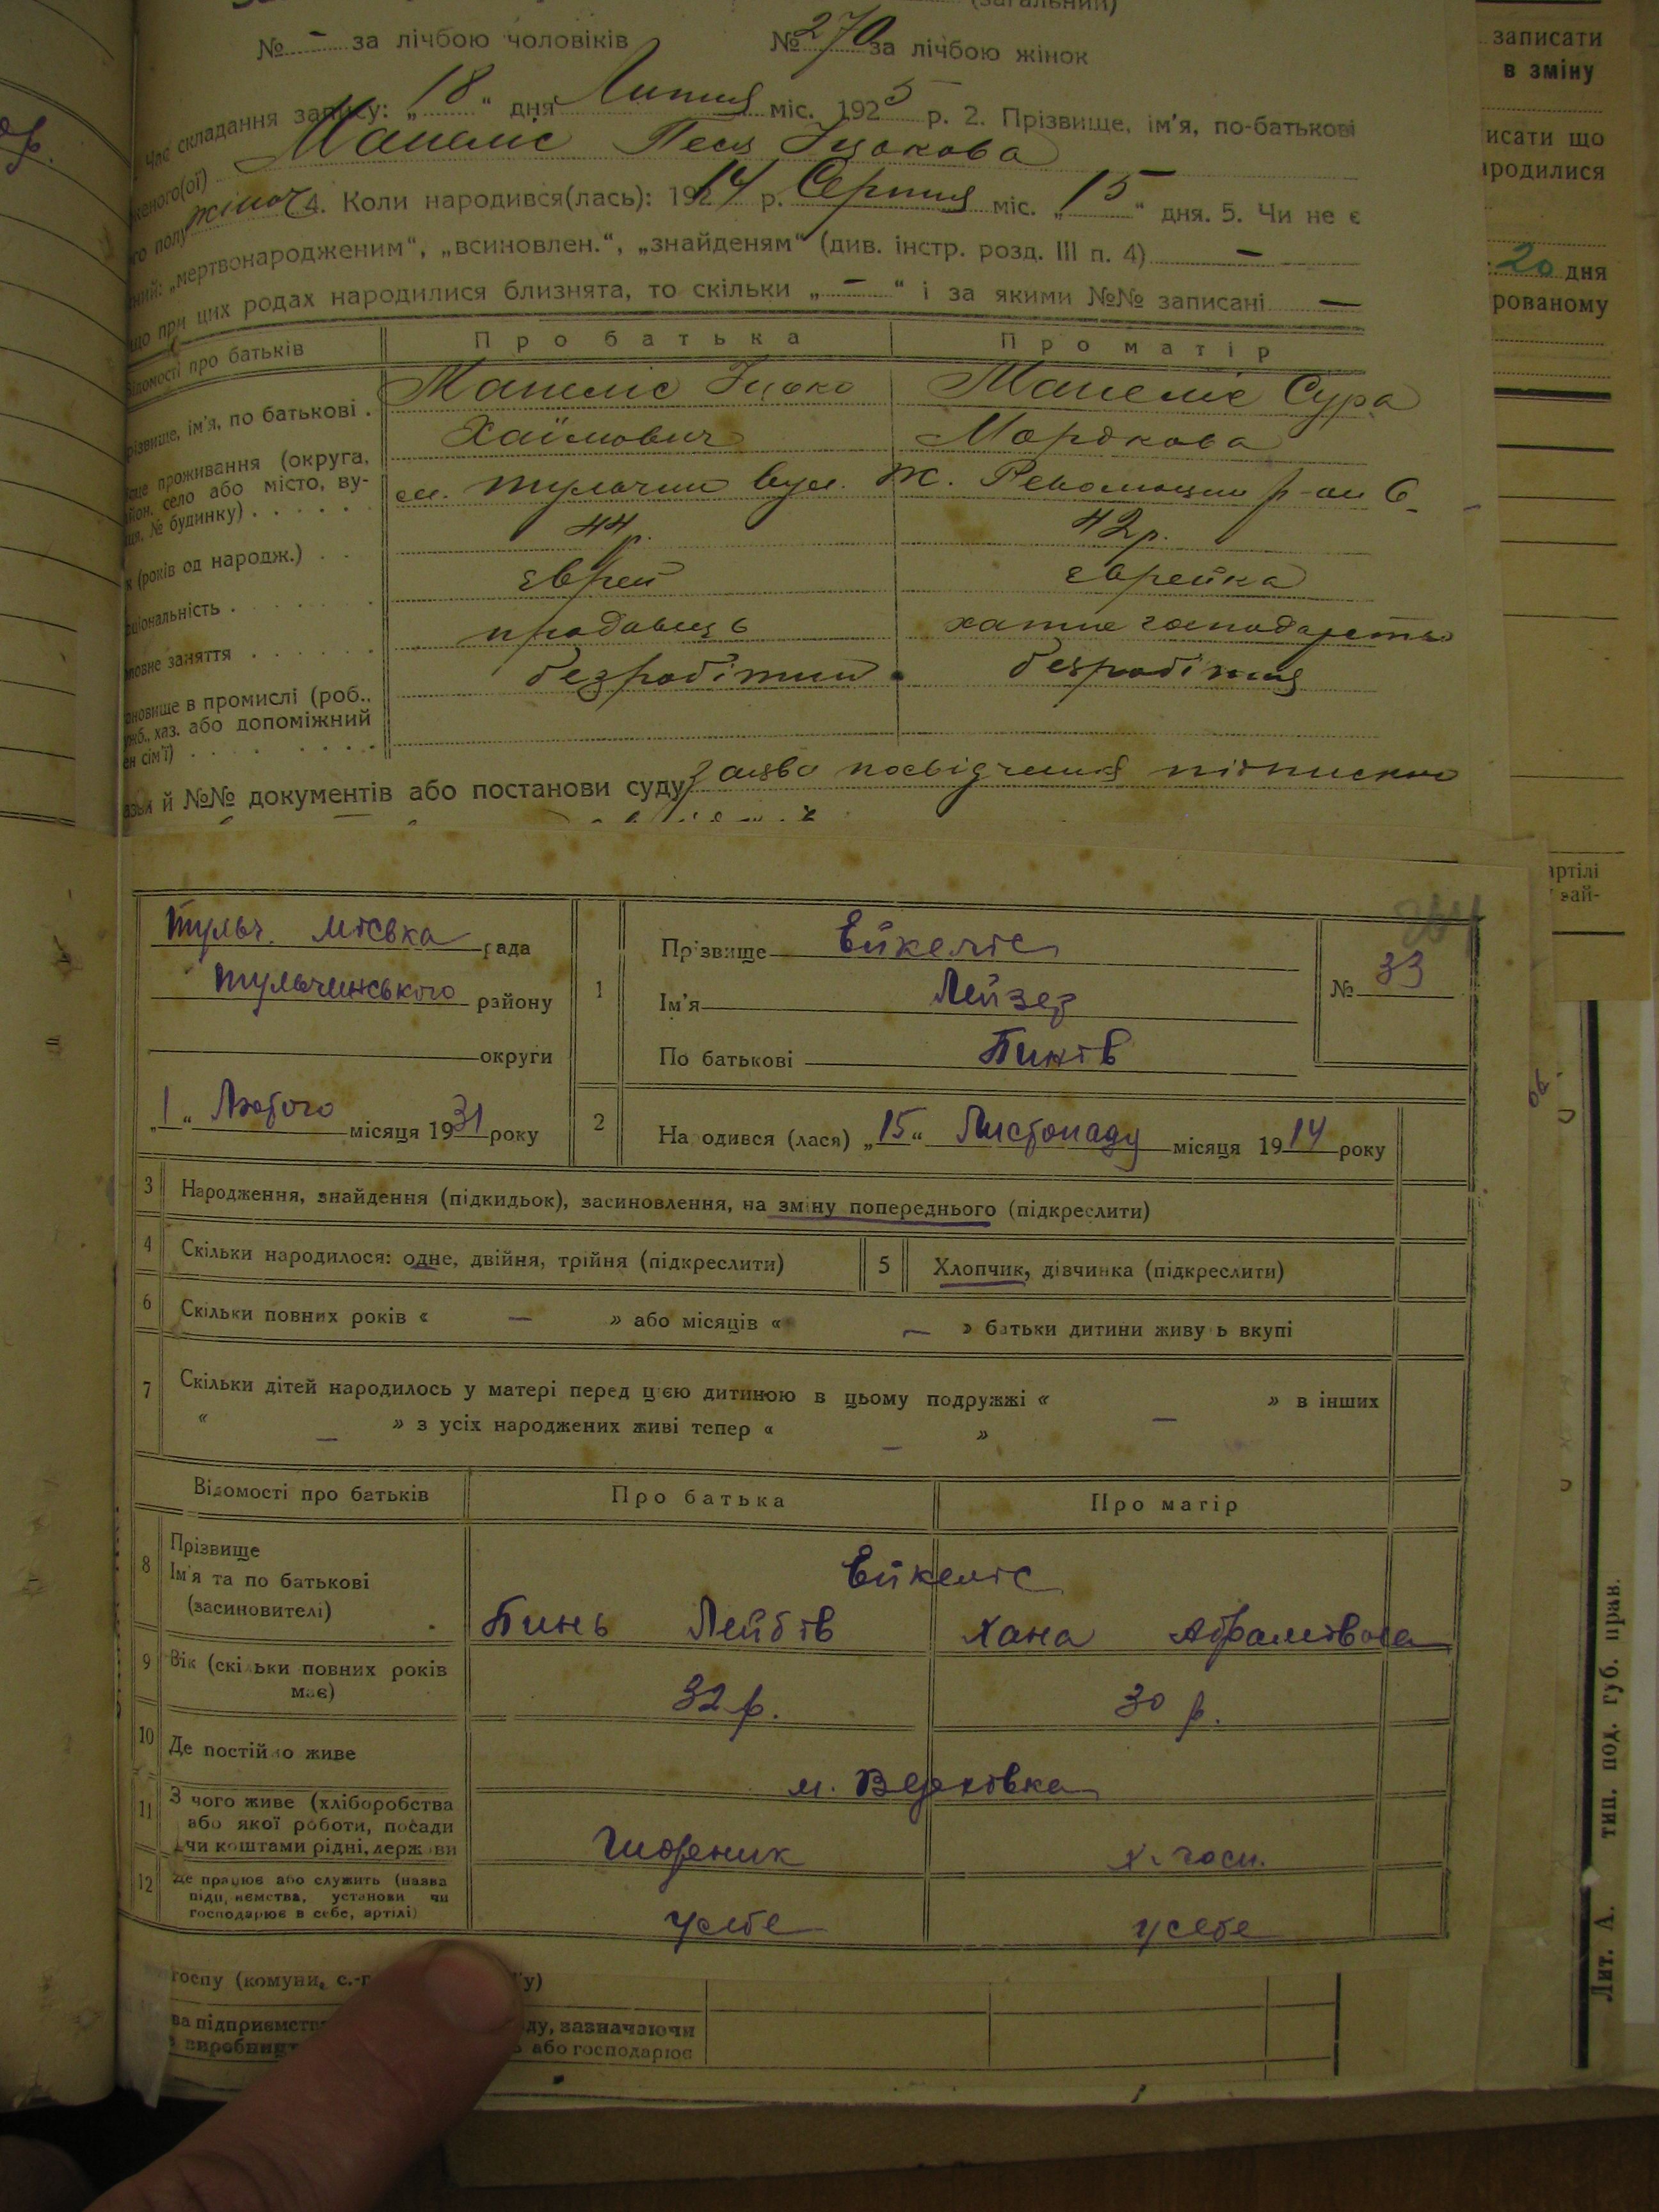 (загальний)
№ - за лічбою чоловіків № 270 за лічбою жінок
Час складання запису: „18“ дня Липня міс. 1925 р. 2. Прізвище, ім'я, по-батькові
женого(ої) Манеліс Геся Іцкокова
го полу жіноч 4. Коли народився(лась): 1914 р. Серпня міс. „15“ дня. 5. Чи не є
ний: „мертвонародженим“, „всиновлен.“, „знайденям“ (див. інстр. розд. III п. 4) —
що при цих родах народилися близнята, то скільки „—“ і за якими №№ записані —
ідомості про батьків Про батька Про матір
різвище, ім'я, по батькові . Манеліс Іцко Манеліс Сура
Хаїмович Мордкова
проживання (округа,
село або місто, ву-
№ будинку) . . . . . м. Тульчин вул. Ж. Революции р-ои 6
к (років од народж.) . . 44 р. 42 р.
ціональність . еврей еврейка
заняття продавець хатне господарство
ановище в промислі (роб.,
хаз. або допоміжний
ен сім'ї) безробітний безробітня
й №№ документів або постанови суду заява посвідчення підпискою
Тульч. міська рада
Тульчинського району
округи
„1“ Лютого місяця 1931 року
1 Прізвище Ейкеліс
Ім'я Лейзер
По батькові Бинів
№ 33
2 Народився (лася) „15“ Листопаду місяця 1914 року
3 Народження, знайдення (підкидьок), засиновлення, на зміну попереднього (підкреслити)
4 Скільки народилося: одне, двійня, трійня (підкреслити) 5 Хлопчик, дівчинка (підкреслити)
6 Скільки повних років « — » або місяців « — » батьки дитини живуть вкупі
7 Скільки дітей народилось у матері перед цією дитиною в цьому подружжі « — » в інших
« — » з усіх народжених живі тепер « — »
Відомості про батьків Про батька Про матір
8 Прізвище
Ім'я та по батькові
(засиновителі)
Ейкеліс
Бинь Лейбів Хана Абрамівна
9 Вік (скільки повних років
має) 32 р. 30 р.
10 Де постійно живе м. Верхівка
11 З чого живе (хліборобства
або якої роботи, посади
чи коштами рідні, держави Шорник х. госп.
12 Де працює або служить (назва
підприємства, установи чи
господарює в себе, артілі) у себе у себе
госпу (комуни, с.-г у)
ва підприємств ду, зазначаючи
виробниц або господарює
записати
в зміну
исати що
ародилися
20 дня
рованому
артілі
зай-
Лит. А. тип. под. губ. прав.